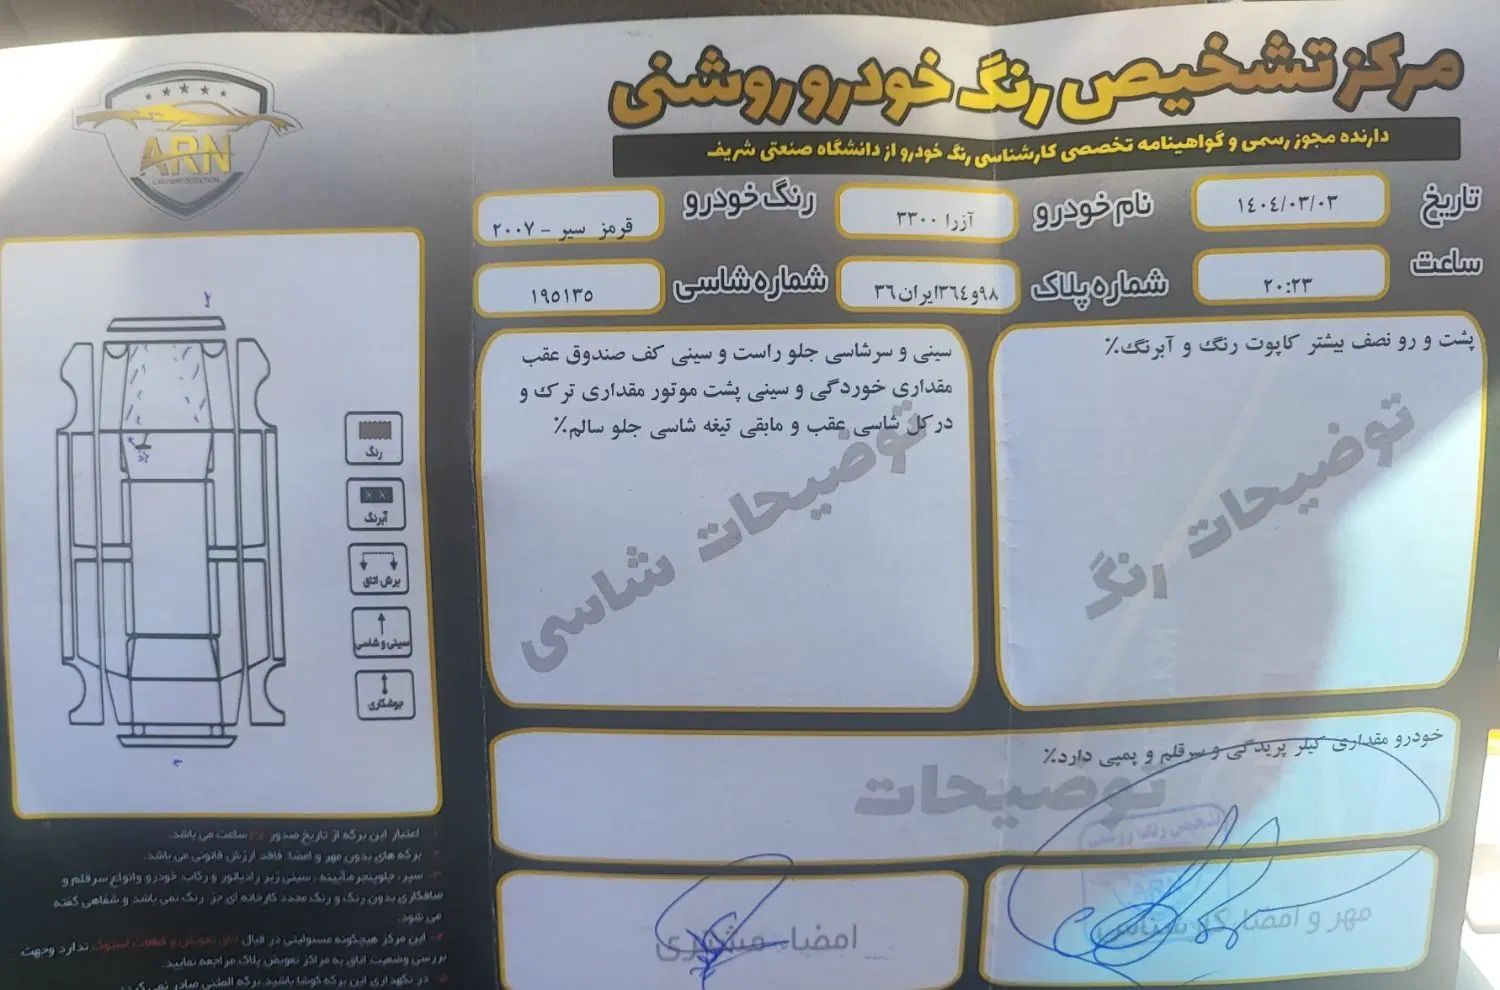 مرکز تشخیص رنگ خودرو روشنی
دارنده مجوز رسمی و گواهینامه تخصصی کارشناسی رنگ خودرو از دانشگاه صنعتی شریف
ARN
CAR PAINT DETECTION
تاریخ ۱٤۰٤/۰۳/۰۳ نام خودرو آزرا ۳۳۰۰ رنگ خودرو قرمز سیر - ۲۰۰۷
ساعت ۲۰:۲۳ شماره پلاک ۹۸و۳٦٤ایران۳٦ شماره شاسی ۱۹۵۱۳۵
پشت و رو نصف بیشتر کاپوت رنگ و آبرنگ٪
توضیحات رنگ
سینی و سرشاسی جلو راست و سینی کف صندوق عقب
مقداری خوردگی و سینی پشت موتور مقداری ترک و
درکل شاسی عقب و مابقی تیغه شاسی جلو سالم٪
توضیحات شاسی
رنگ
آبرنگ
برش اتاق
سینی و شاسی
جوشکاری
خودرو مقداری کیلر پریدگی و سرقلم و پمپی دارد٪
توضیحات
مهر و امضا کارشناسی
امضاء مشتری
اعتبار این برگه از تاریخ صدور ساعت می باشد.
برگه های بدون مهر و امضا فاقد ارزش قانونی می باشد.
سپر، جلوپنجره، آیینه، سینی زیر رادیاتور و رکاب خودرو وانواع سرقلم و
صافکاری بدون رنگ و رنگ مجدد کارخانه ای جز رنگ نمی باشد و شفاهی گفته
می شود.
این مرکز هیچگونه مسئولیتی در قبال اتاق تعویض و قطعات استوک ندارد وجهت
بررسی وضعیت اتاق به مراکز تعویض پلاک مراجعه نمایید.
در نگهداری این برگه کوشا باشید. برگه المثنی صادر نمی گردد.